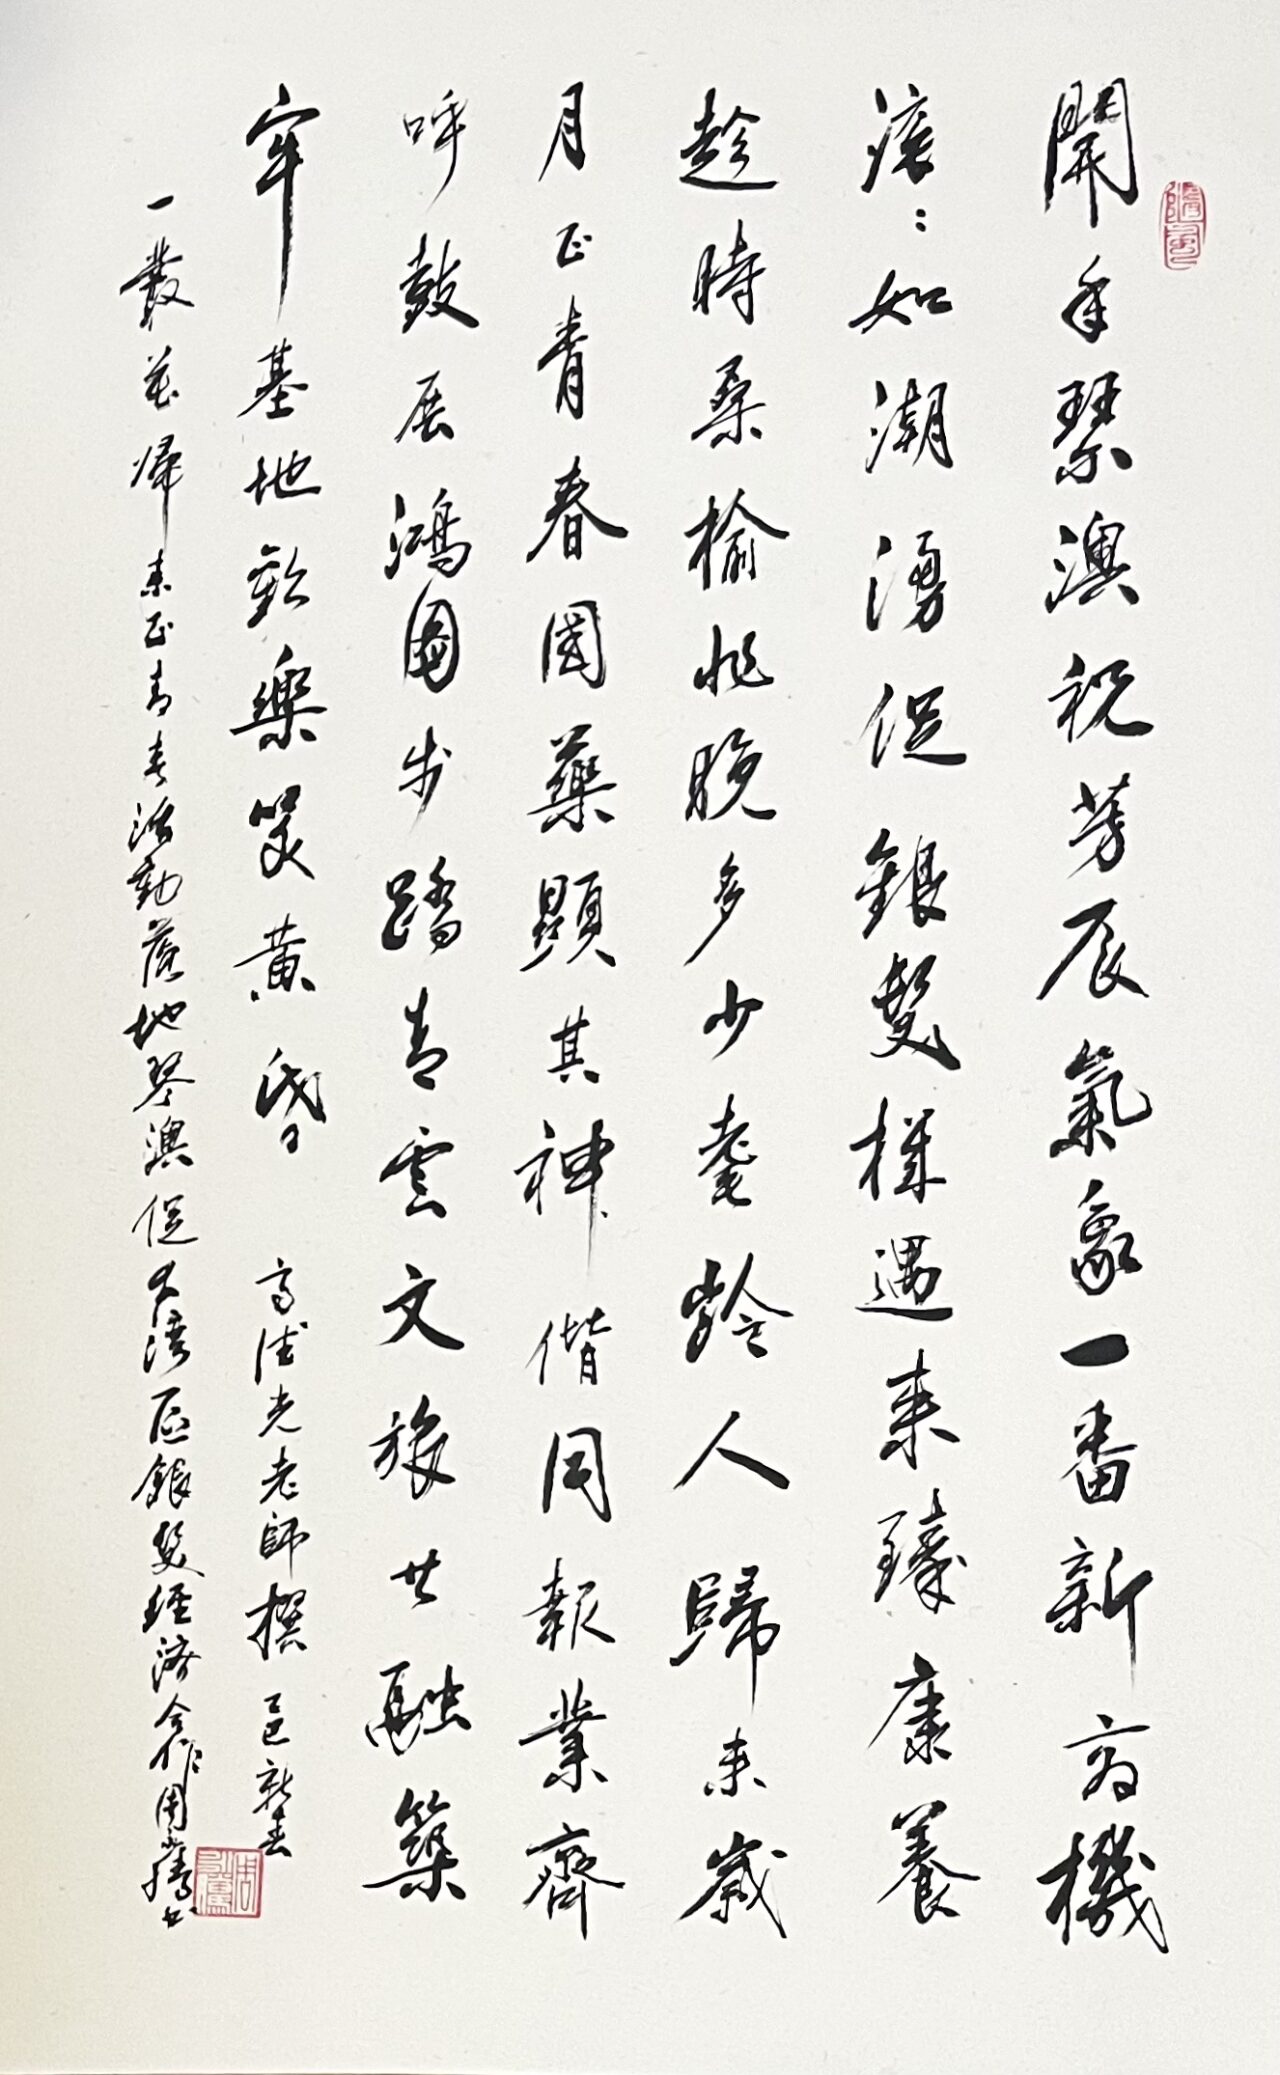 開年琴澳祝芳辰氣象一番新商機
滾滾如潮湧促銀髮樣遇來臻康養
趁時桑榆非晚多少耄齡人歸來歲
月正青春國藥顯其神偕同報業齊
呼鼓展鴻圖步踏青雲文旅共融築
牢基地歡樂笑黃昏 高德光老師撰 乙巳新春
一叢花歸來正青春活動落地琴澳促大灣區銀髮經濟合作 周 書